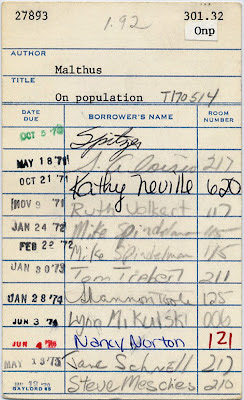 27893 1.92 301.32
Onp
AUTHOR
Malthus
TITLE
On population T170514
DATE DUE BORROWER'S NAME ROOM NUMBER
OCT 5 '70 Spitzer
MAY 18 '71 217
OCT 21 '71 Kathy Neville 620
NOV 9 '71 Ruth Volkert 117
JAN 24 '72 Mike Spindelman 115
FEB 22 '72 Mike Spindelman 115
JAN 30 '73 Tom 211
JAN 28 '74 Shannon 125
JUN 3 '74 Lynn Mikulski 006
JUN 4 Nancy Norton 121
MAY 13 '75 Jane Schnell 212
Steve Mosches 210
GAYLORD